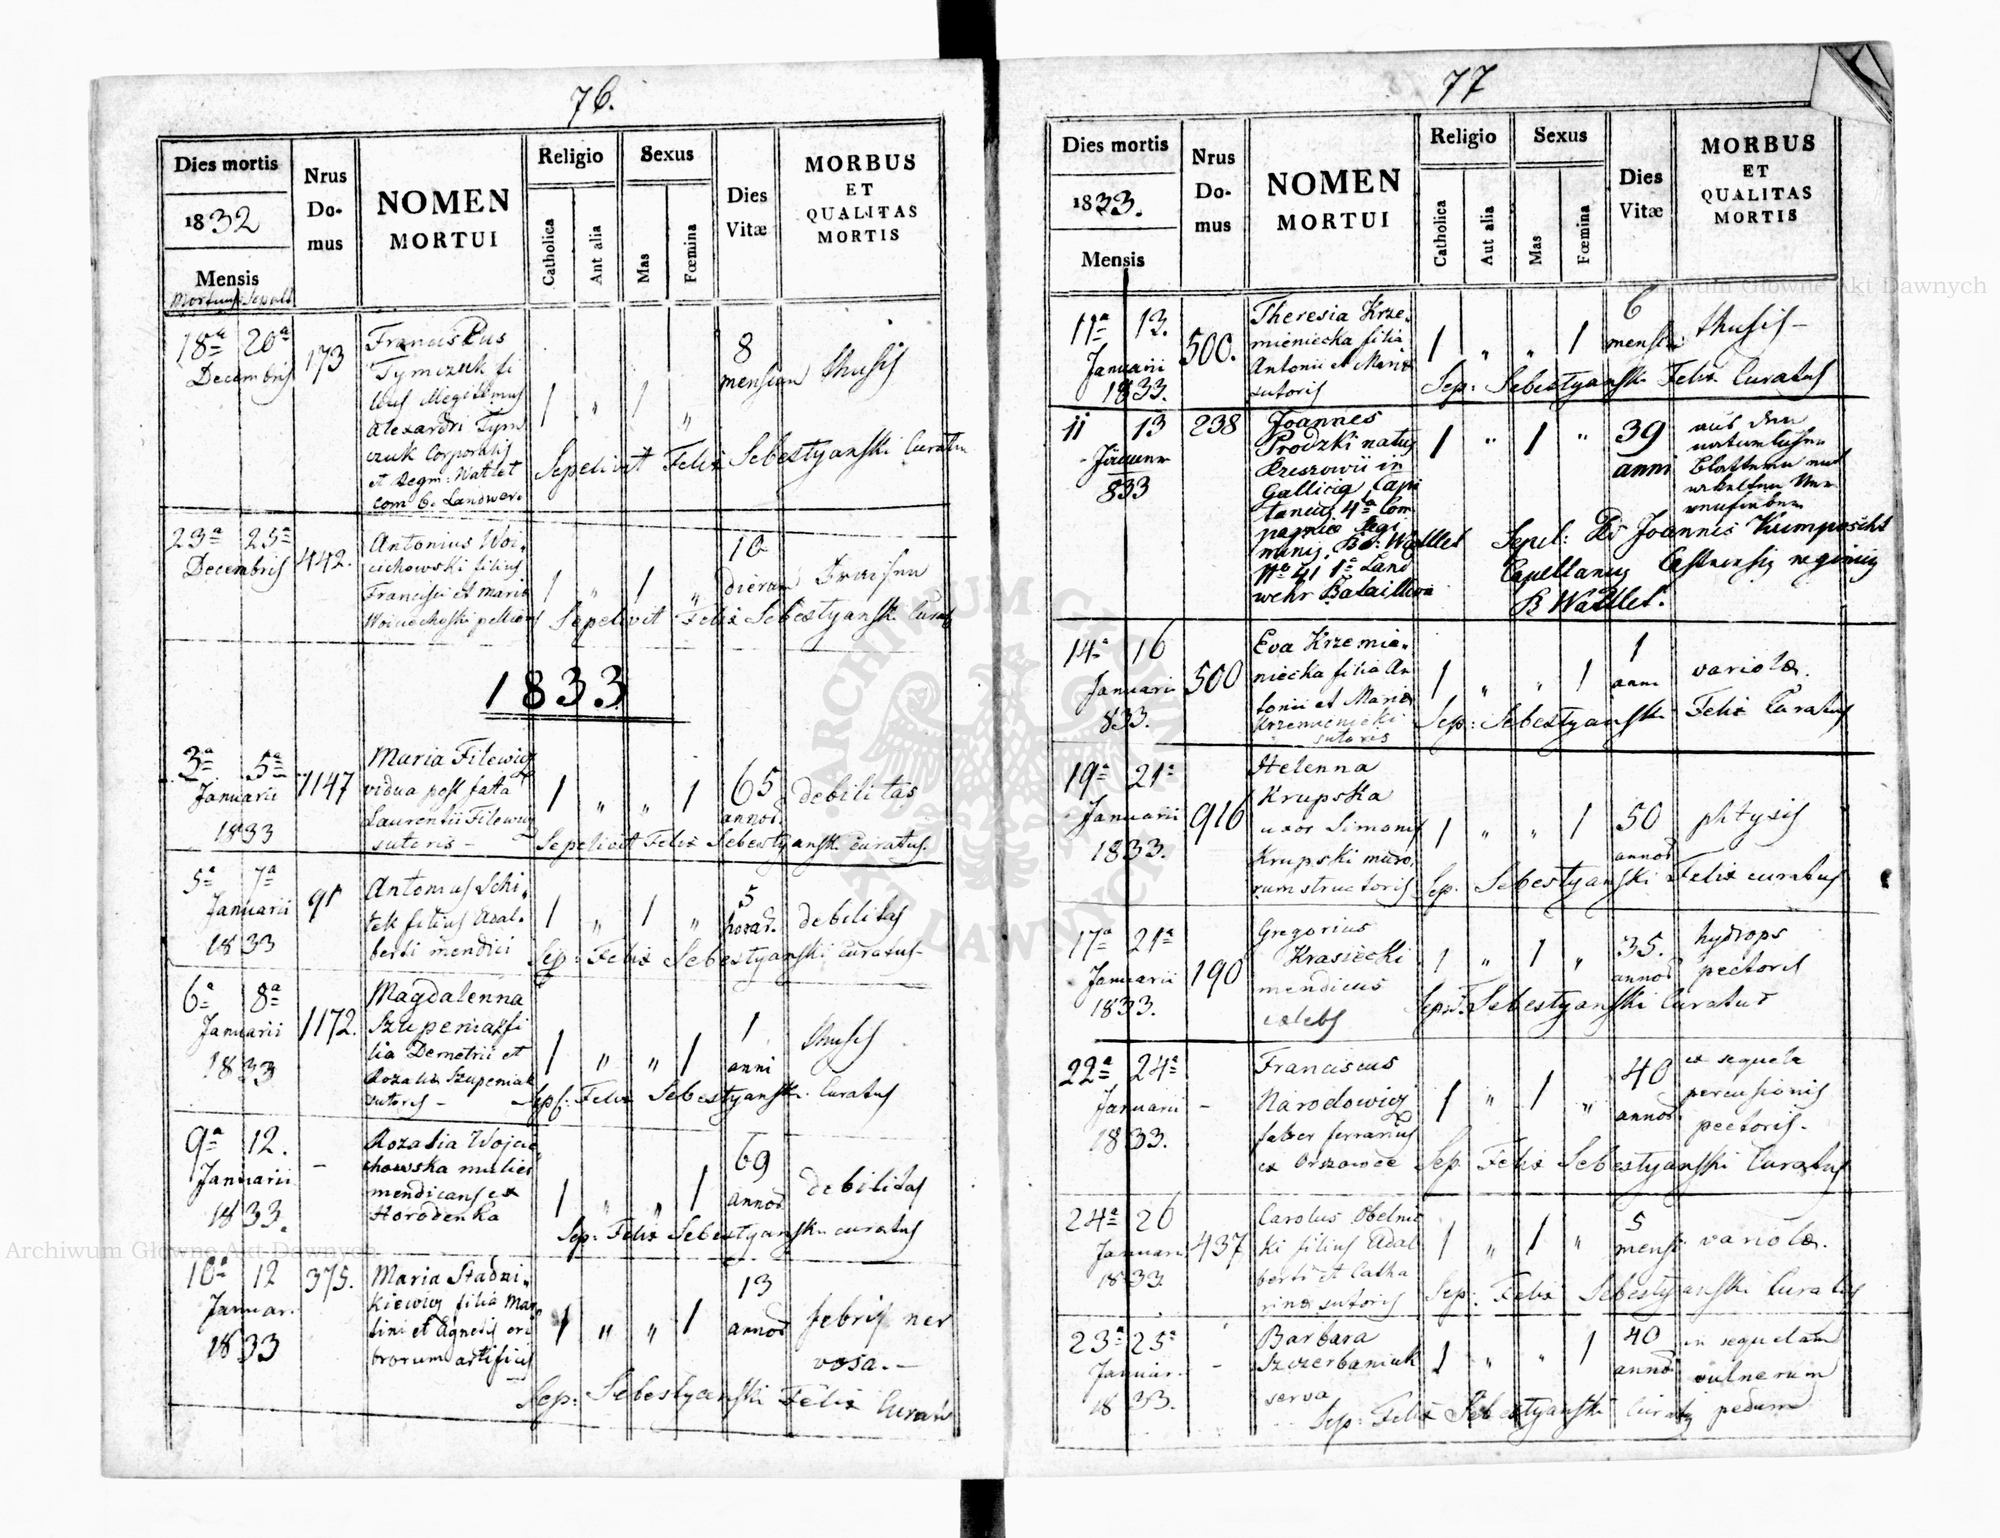 76.
Dies mortis
1832
Mensis
Mortuus Sepult
Nrus
Do-
mus
NOMEN
MORTUI
Religio
Catholica
Aut alia
Sexus
Mas
Fœmina
Dies
Vitæ
MORBUS
ET
QUALITAS
MORTIS
18ª 20ª
Decembris
173
Franciscus
Tymczuk fi
lius illegitimus
Alexandri Tym
czuk Corporalis
et Regm: Watlet
com 6. Landwer:
1 " 1 "
8
mensium
thusis
Sepelivit Felix Sebestyanski Curatus
23ª 25ª
Decembris
442.
Antonius Woi-
cichowski filius
Francisci et Maria
pellionis
1 " 1 "
10
dierum
Fraisen
Sepelivit Felix Sebestyanski Curatus
1833
3ª 5ª
Januarii
1833
1147
Maria Filewicz
vidua post fata
Laurentii Filewicz
sutoris –
1 " " 1
65
annor.
debilitas
Sepelivit Felix Sebestyanski curatus.
5ª 7ª
Januarii
1833
91
Antonius Schi-
tek filius Adal-
berti mendici
1 " 1 "
5
horar.
debilitas
Sep: Felix Sebestyanski curatus –
6ª 8ª
Januarii
1833
1172.
Magdalenna
Szupeniak fi
lia Demetrii et
Rozalia Szupeniak
sutoris –
1 " " 1
1
anni
thusis
Sep: Felix Sebestyanski Curatus
9ª 12.
Januarii
1833.
–
Rozalia Wojcie
chowska mulier
mendicans ex
Horodenka
1 " " 1
69
annor
debilitas
Sep: Felix Sebestyanski curatus
10ª 12
Januar.
1833
375.
Maria Stadni-
kiewicz filia Mar
tini et Agnetis cri
brorum artificis
1 " " 1
13
annor
febris ner
vosa. –
Sep: Sebestyanski Felix Curatus
77
Dies mortis
1833.
Mensis
Nrus
Do-
mus
NOMEN
MORTUI
Religio
Catholica
Aut alia
Sexus
Mas
Fœmina
Dies
Vitæ
MORBUS
ET
QUALITAS
MORTIS
11ª 13.
Januarii
1833.
500.
Theresia Krze-
mieniecka filia
Antonii et Maria
sutoris
1 " " 1
6
mensi
thusis –
Sep: Sebestyanski Felix Curatus
11 13
Januar
833
238
Joannes
Prodzki natus
Rzeszovii in
Gallicia Capi
taneus 4ª Com
pagniae Regi
minis B: Watlet
No 41 1ª Land
wehr Bataillon
1 " 1 "
39
anni
aus den
natürlichen
Blattern
Sepel: Joannes Kumposcht
Capellanus Castrensis regiminis
B Watlet.
14ª 16
Januarii
833.
500
Eva Krzemie-
niecka filia An
tonii et Maria
Krzemienicki
sutoris
1 " " 1
1
anni
variolæ.
Sep: Sebestyanski Felix Curatus
19ª 21ª
Januarii
1833.
916
Helenna
Krupska
uxor Simonis
Krupski muro-
rum structoris
1 " " 1
50
annor
phtysis
Sep. Sebestyanski Felix curatus
17ª 21ª
Januarii
1833.
190
Gregorius
Krasiecki
mendicus
celebs
1 " 1 "
35.
annor
hydrops
pectoris
Sepel. Sebestyanski Curatus
22ª 24ª
Januarii
1833.
–
Franciscus
Narodowicz
faber ferrarius
ex Orszowce
1 " 1 "
40
annor
ex sequela
percusionis
pectoris –
Sep Felix Sebestyanski Curatus
24ª 26
Januari
1833.
437
Carolus Obelnic
ki filius Adal
berti et Catha
rina sutoris
1 " 1 "
5
mensi
variolæ.
Sep: Felix Sebestyanski Curatus
23ª 25ª
Januar.
1833.
–
Barbara
Szczerbaniuk
serva
1 " " 1
40
annor
in sequelam
vulnerum
pedum
Sep: Felix Sebestyanski Curatus
Archiwum Główne Akt Dawnych
Archiwum Główne Akt Dawnych
ARCHIWUM GŁÓWNE AKT DAWNYCH